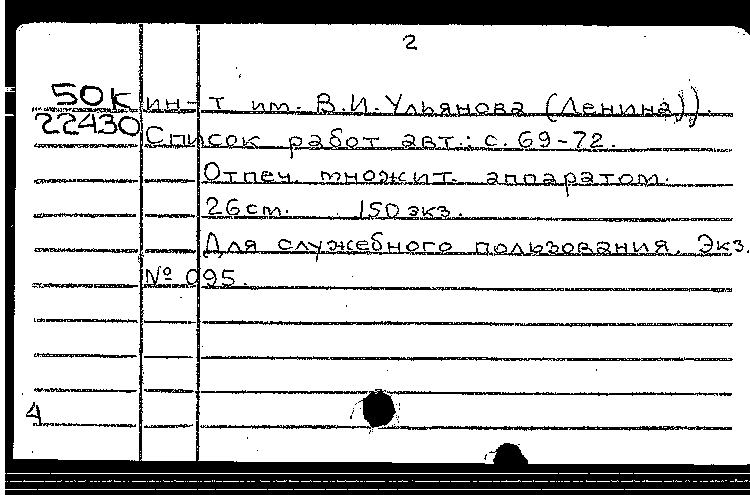 2
50к ин-т им. В.И.Ульянова (Ленина)).
22430 Список работ авт.: с. 69-72.
Отпеч. множит. аппаратом.
26см. 150экз.
Для служебного пользования. Экз.
№ 095.
4